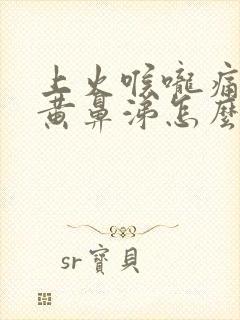 上火喉嚨痛
黃鼻涕怎麼
sr寶貝